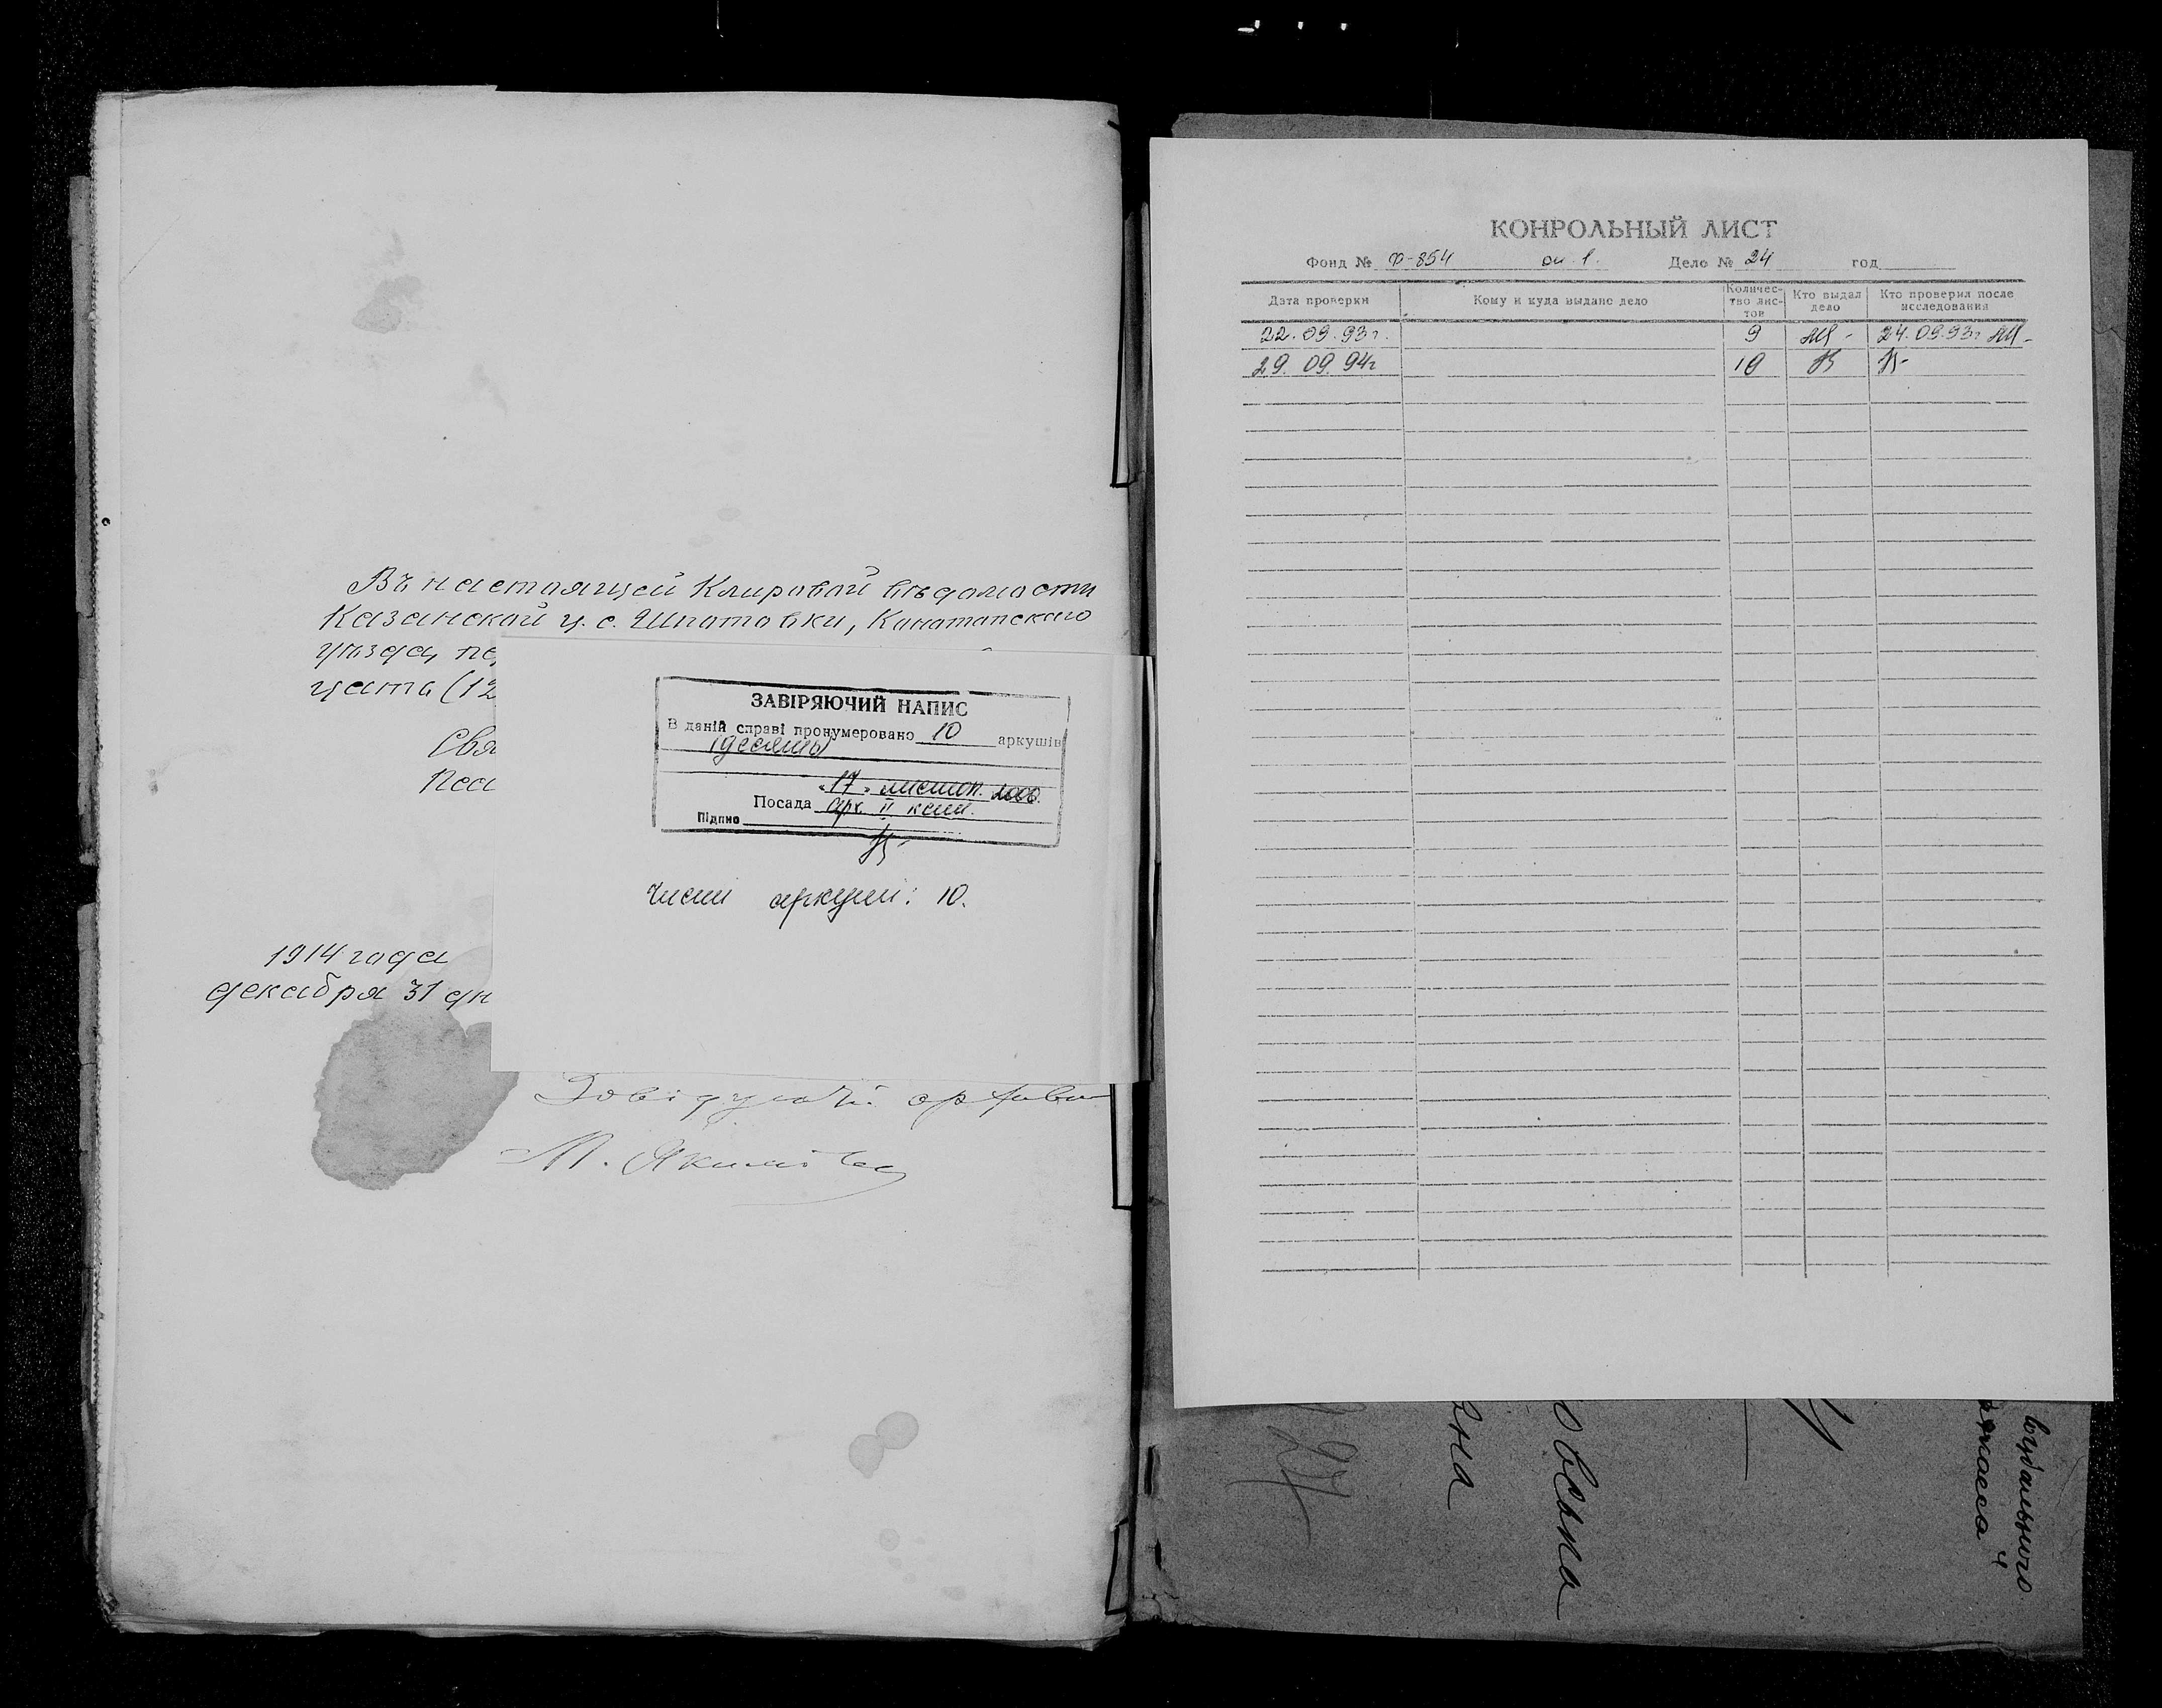 Въ настоящей Клировой вѣдомости
Казанской ц. с. Шпотовки, Конотопскаго
уѣзда, пе
цать (12
Свя
Пса
1914 года
декабря 31 дн
ЗАВІРЯЮЧИЙ НАПИС
В даній справі пронумеровано 10 аркушів
(десять)
"17" листоп. 2000.
Посада арх. II кат.
Підпис
Чисті аркуші: 10.
Завідуючий архівом
М. Якимова
КОНРОЛЬНЫЙ ЛИСТ
Фонд № Ф-854 оп. 1. Дело № 24 год
Дата проверки Кому и куда выдано дело Количес-тво лис-тов Кто выдал дело Кто проверил после исследования
22.09.93г. 9 24.09.93г
29.09.94г 10
овсапа
яна